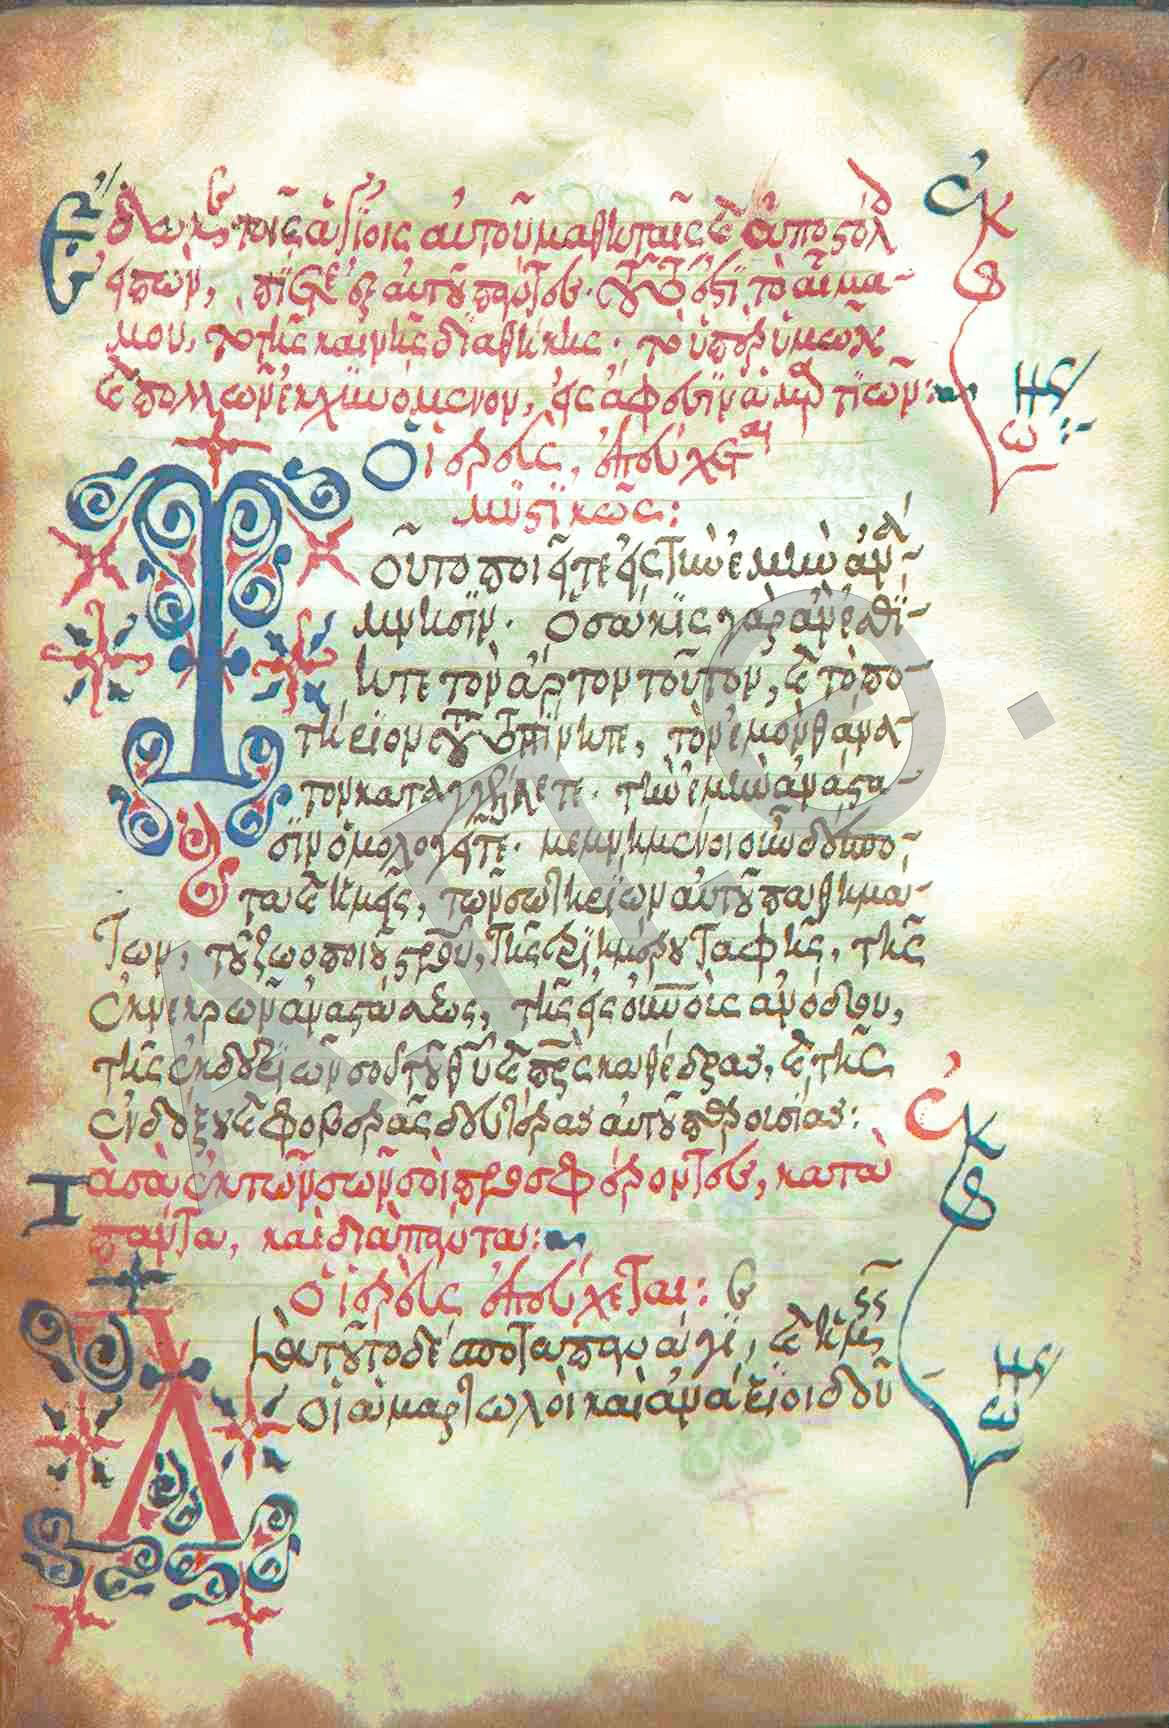 Ἔδωκε τοῖς ἁγίοις αὐτοῦ μαθηταῖς καὶ ἀποστόλ
εἰπών, πίετε ἐξ αὐτοῦ πάντες· τοῦτό ἐστι τὸ αἷμα
μου, τὸ τῆς καινῆς διαθήκης· τὸ ὑπὲρ ὑμῶν
καὶ πολλῶν ἐκχυνόμενον, εἰς ἄφεσιν ἁμαρτιῶν:
Ὁ ἱερεὺς, ἐπεύχεται
μυστικῶς:
Τοῦτο ποιεῖτε εἰς τὴν ἐμὴν ἀνά-
μνησιν· ὁσάκις γὰρ ἂν ἐσθί-
ητε τὸν ἄρτον τοῦτον, καὶ τὸ πο-
τήριον τοῦτο πίνητε, τὸν ἐμὸν θάνα-
τον καταγγέλετε· τὴν ἐμὴν ἀνάστα-
σιν ὁμολογεῖτε· μεμνημένοι οὖν δέσπο-
τα καὶ ἡμεῖς, τῶν σωτηρίων αὐτοῦ παθημά-
των, τοῦ ζωοποιοῦ σταυροῦ, τῆς τριημέρου ταφῆς, τῆς
ἐκ νεκρῶν ἀναστάσεως, τῆς εἰς οὐνοὺς ἀνόδου,
τῆς ἐκ δεξιῶν σοῦ τοῦ θυ καὶ πρς καθέδρας, καὶ τῆς
ἐνδόξου καὶ φοβερᾶς δευτέρας αὐτοῦ παρουσίας:
Τὰ σὰ ἐκ τῶν σῶν σοὶ προσφέροντες, κατὰ
πάντα, καὶ διὰ πάντα:
Ὁ ἱερεὺς ἐπεύχεται:
Διὰ τοῦτο δέσποτα πανάγιε, καὶ ἡμεῖς
οἱ ἁμαρτωλοὶ καὶ ἀνάξιοι δοῦ
ἐκφώ
νως
ἐκφώ
νως